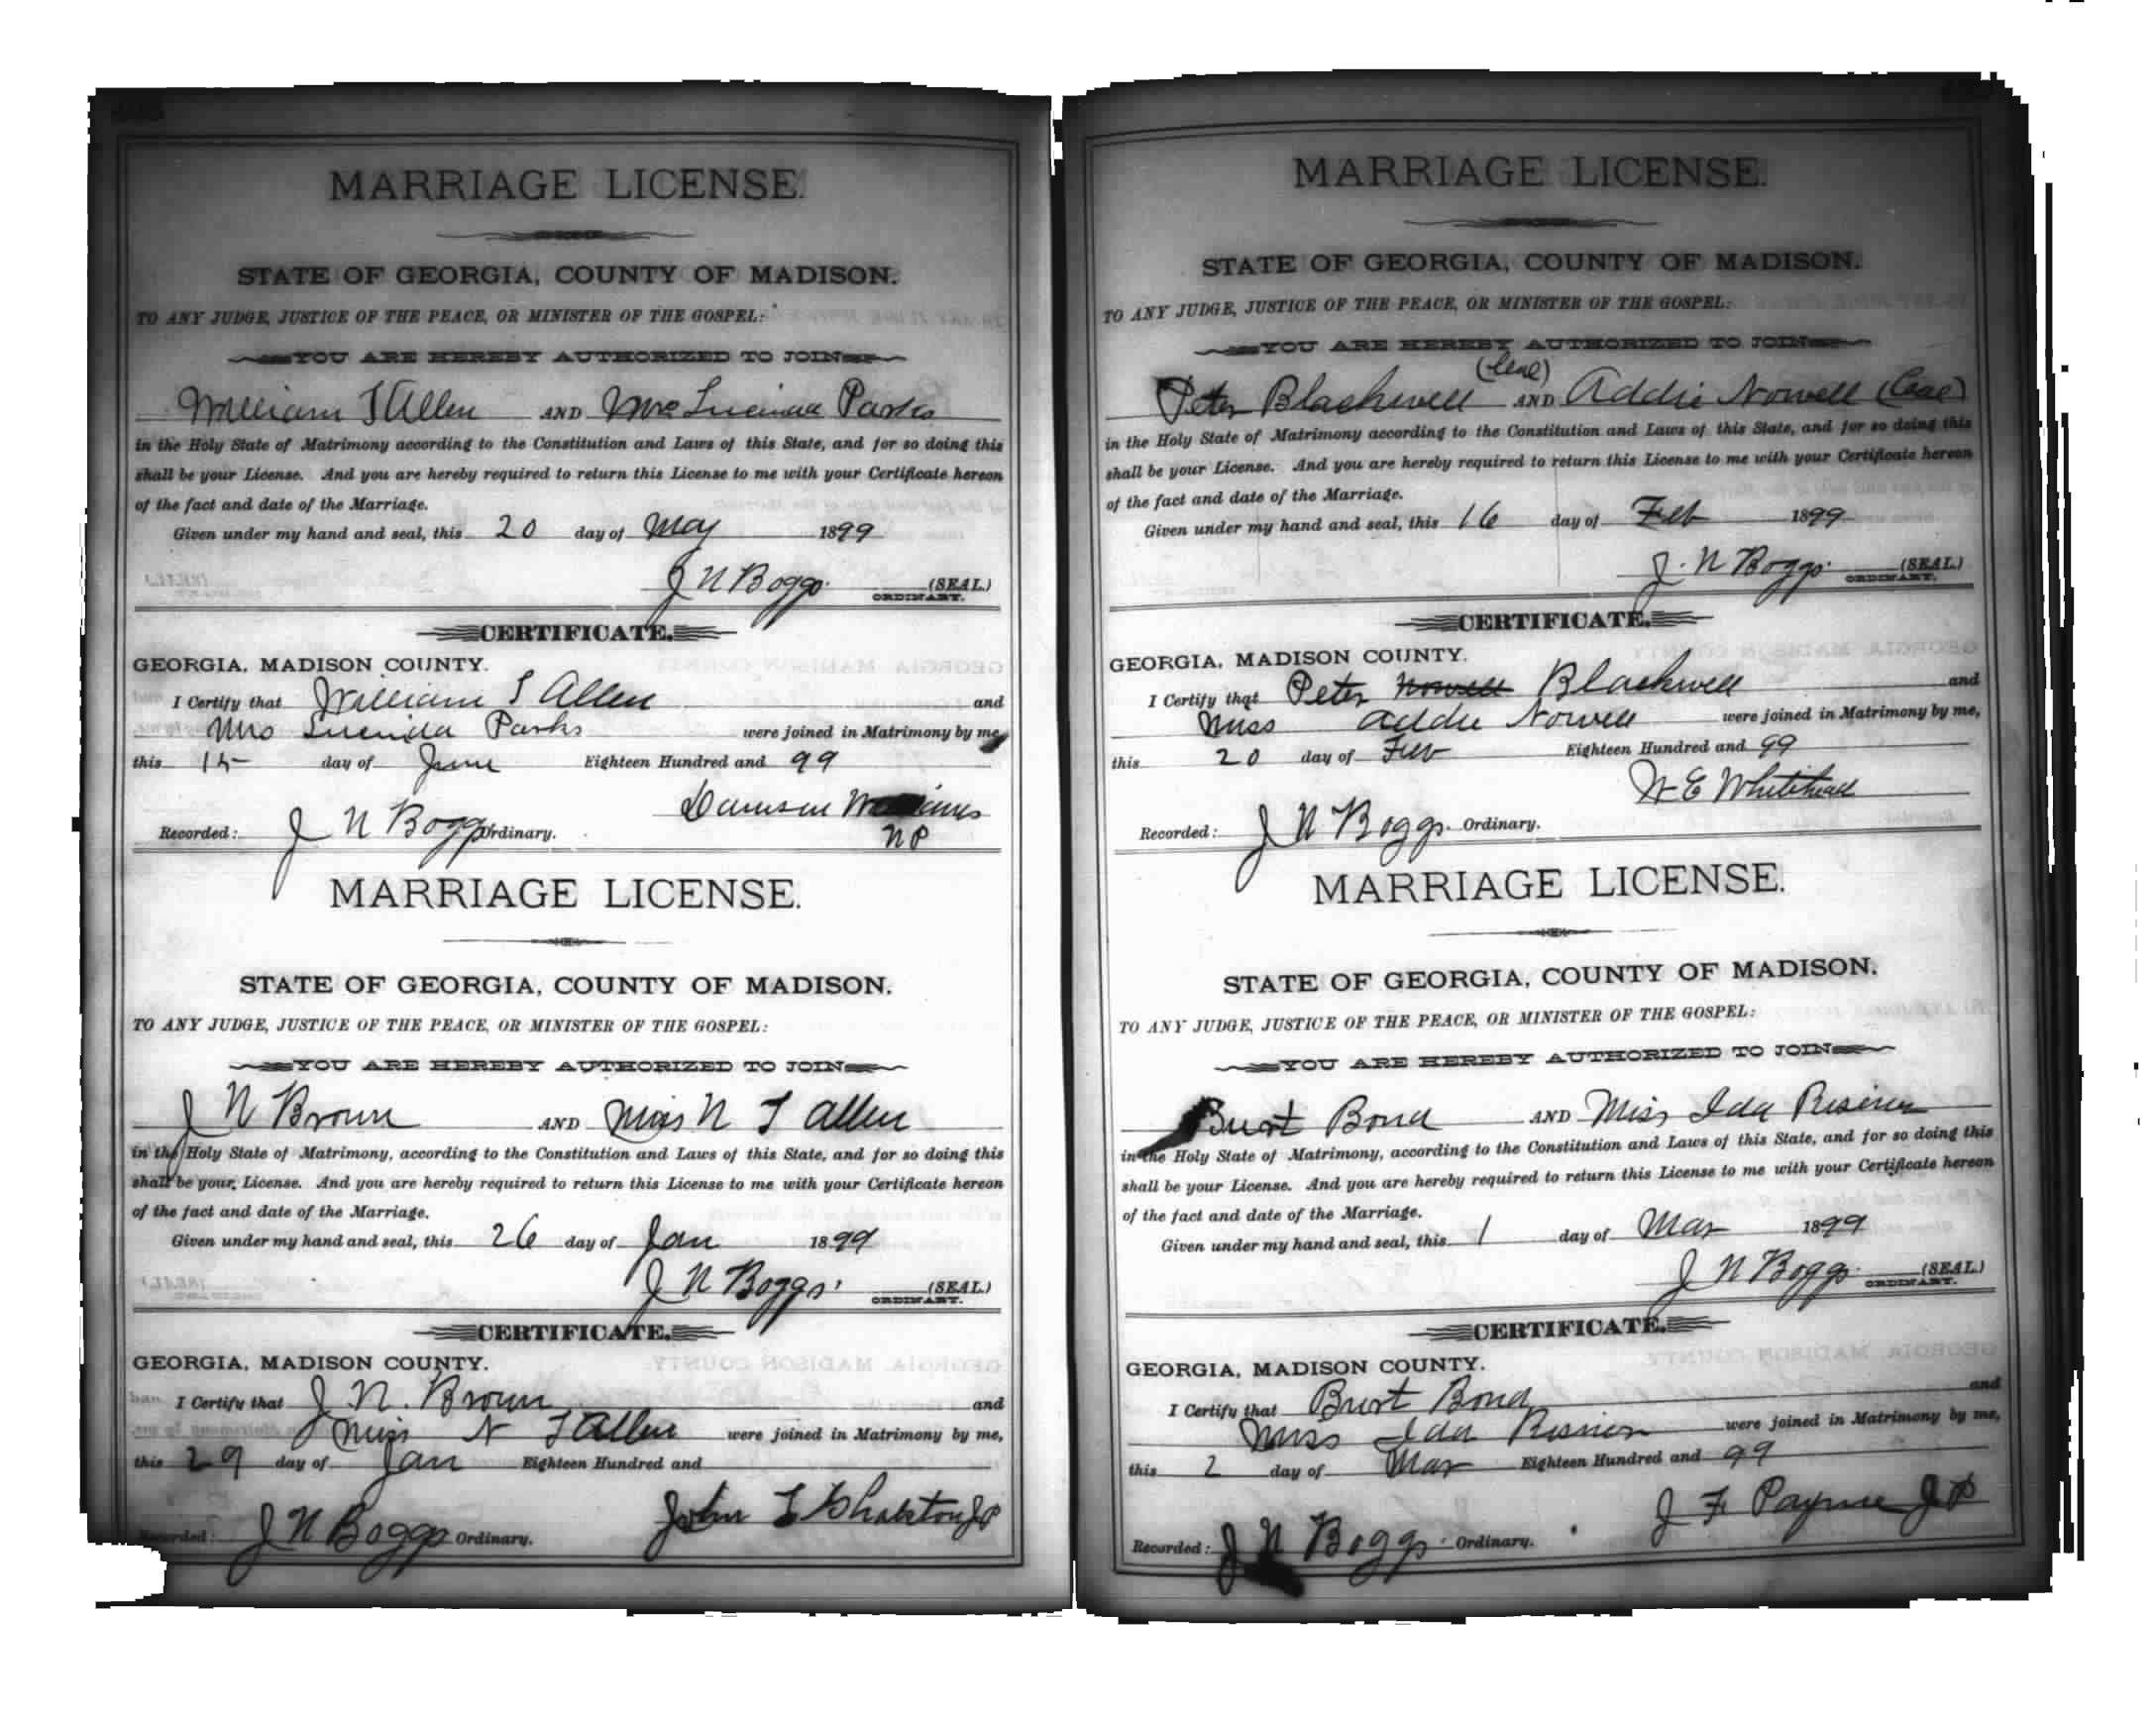 MARRIAGE LICENSE.
STATE OF GEORGIA, COUNTY OF MADISON.
TO ANY JUDGE, JUSTICE OF THE PEACE, OR MINISTER OF THE GOSPEL:
YOU ARE HEREBY AUTHORIZED TO JOIN
William T Allen AND Mrs Lucinda Parks
in the Holy State of Matrimony according to the Constitution and Laws of this State, and for so doing this
shall be your License. And you are hereby required to return this License to me with your Certificate hereon
of the fact and date of the Marriage.
Given under my hand and seal, this 20 day of May 1899
J N Boggs (SEAL)
ORDINARY.
CERTIFICATE.
GEORGIA, MADISON COUNTY.
I Certify that William T Allen and
Mrs Lucinda Parks were joined in Matrimony by me,
this 15 day of June Eighteen Hundred and 99
Recorded: J N Boggs Ordinary.
NP
MARRIAGE LICENSE.
STATE OF GEORGIA, COUNTY OF MADISON.
TO ANY JUDGE, JUSTICE OF THE PEACE, OR MINISTER OF THE GOSPEL:
YOU ARE HEREBY AUTHORIZED TO JOIN
J N Brown AND Miss N T Allen
in the Holy State of Matrimony, according to the Constitution and Laws of this State, and for so doing this
shall be your License. And you are hereby required to return this License to me with your Certificate hereon
of the fact and date of the Marriage.
Given under my hand and seal, this 26 day of Jan 1899
J N Boggs (SEAL)
ORDINARY.
CERTIFICATE.
GEORGIA, MADISON COUNTY.
I Certify that J. N. Brown and
Miss N T Allen were joined in Matrimony by me,
this 29 day of Jan Eighteen Hundred and
John JP
Recorded: J N Boggs Ordinary.
MARRIAGE LICENSE.
STATE OF GEORGIA, COUNTY OF MADISON.
TO ANY JUDGE, JUSTICE OF THE PEACE, OR MINISTER OF THE GOSPEL:
YOU ARE HEREBY AUTHORIZED TO JOIN
Peter Blackwell (Col) AND Addie Nowell (Col)
in the Holy State of Matrimony according to the Constitution and Laws of this State, and for so doing this
shall be your License. And you are hereby required to return this License to me with your Certificate hereon
of the fact and date of the Marriage.
Given under my hand and seal, this 16 day of Feb 1899
J. N Boggs (SEAL)
ORDINARY.
CERTIFICATE.
GEORGIA, MADISON COUNTY.
I Certify that Peter Nowell Blackwell and
Miss Addie Nowell were joined in Matrimony by me,
this 20 day of Feb Eighteen Hundred and 99
W E Whitehead
Recorded: J N Boggs Ordinary.
MARRIAGE LICENSE.
STATE OF GEORGIA, COUNTY OF MADISON.
TO ANY JUDGE, JUSTICE OF THE PEACE, OR MINISTER OF THE GOSPEL:
YOU ARE HEREBY AUTHORIZED TO JOIN
Burt Bond AND Miss Ida
in the Holy State of Matrimony, according to the Constitution and Laws of this State, and for so doing this
shall be your License. And you are hereby required to return this License to me with your Certificate hereon
of the fact and date of the Marriage.
Given under my hand and seal, this 1 day of Mar 1899
J N Boggs (SEAL)
ORDINARY.
CERTIFICATE.
GEORGIA, MADISON COUNTY.
I Certify that Burt Bond and
Miss Ida were joined in Matrimony by me,
this 2 day of Mar Eighteen Hundred and 99
J F Payne JP
Recorded: J N Boggs Ordinary.